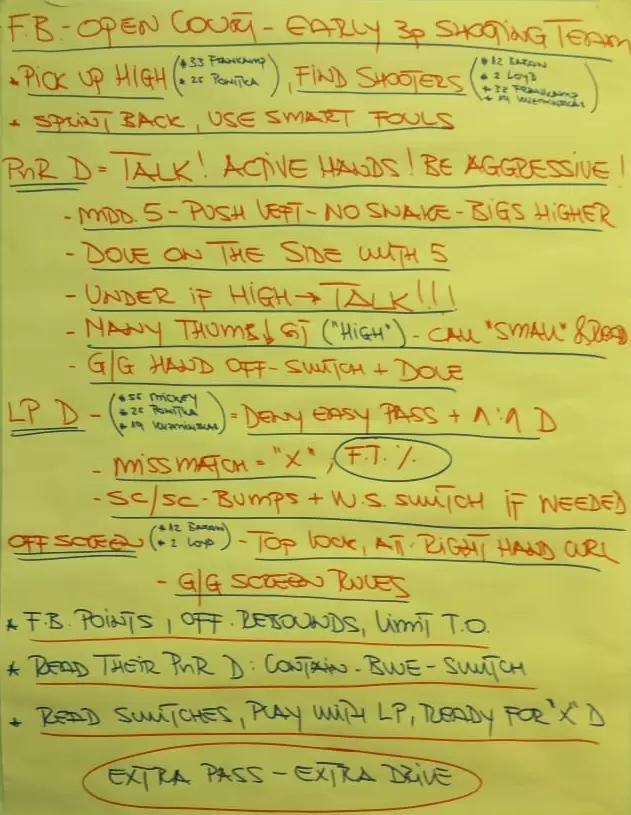 F.B. - OPEN COURT - EARLY 3p SHOOTING TEAM
* PICK UP HIGH (* 33 FRANKAMP * 25 PONITKA), FIND SHOOTERS (* 12 BARON * 2 LOYD * 33 FRANKAMP * 19 KUZMINSKAS)
* SPRINT BACK, USE SMART FOULS
PnR D = TALK! ACTIVE HANDS! BE AGGRESSIVE!
- MIDD. 5 - PUSH LEFT - NO SNAKE - BIGS HIGHER
- DOLE ON THE SIDE WITH 5
- UNDER IF HIGH → TALK!!!
- MANY THUMB↓ ST ("HIGH") - CALL "SMALL" & READ
- G/G HAND OFF - SWITCH + DOLE
LP D - (* 55 MICKEY * 25 PONITKA * 19 KUZMINSKAS) = DENY EASY PASS + 1:1 D
- MISSMATCH = "X", F.T. %
- SC/SC - BUMPS + W.S. SWITCH IF NEEDED
OFF SCREEN (* 12 BARON * 2 LOYD) - TOP LOCK, AT. RIGHT HAND CURL
- G/G SCREEN RULES
* F.B. POINTS, OFF. REBOUNDS, LIMIT T.O.
* READ THEIR PnR D: CONTAIN - BLUE - SWITCH
* READ SWITCHES, PLAY WITH LP, READY FOR "X" D
EXTRA PASS - EXTRA DRIVE